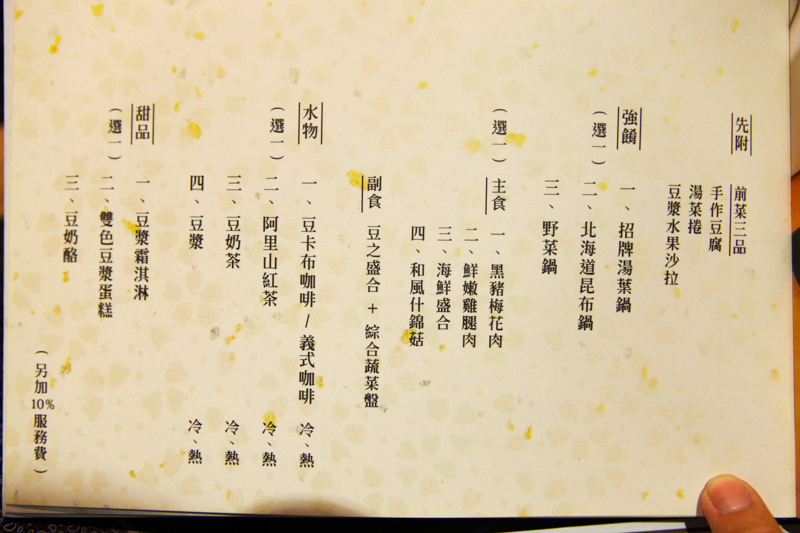 先附
前菜三品
手作豆腐
湯菜捲
豆漿水果沙拉
強餚
(選一)
一、招牌湯葉鍋
二、北海道昆布鍋
三、野菜鍋
(選一)
主食
一、黑豬梅花肉
二、鮮嫩雞腿肉
三、海鮮盛合
四、和風什錦菇
副食
豆之盛合 + 綜合蔬菜盤
水物
(選一)
一、豆卡布咖啡 / 義式咖啡 冷、熱
二、阿里山紅茶 冷、熱
三、豆奶茶 冷、熱
四、豆漿 冷、熱
甜品
(選一)
一、豆漿霜淇淋
二、雙色豆漿蛋糕
三、豆奶酪
(另加10%服務費)